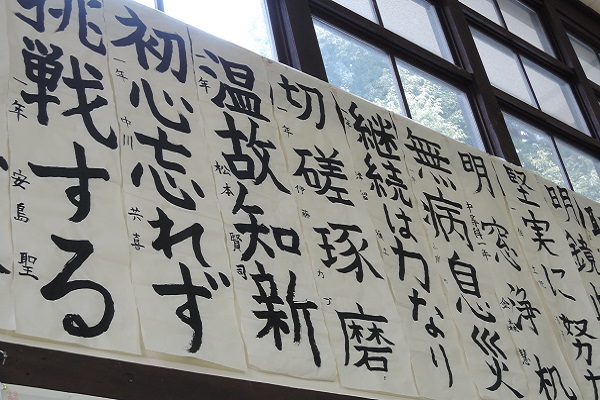 明鏡
堅実に努力
明窓浄机
無病息災
継続は力なり
切磋琢磨
一年 伊藤
温故知新
一年 松本 賢司
初心忘れず
一年 中川 共喜
挑戦する
一年 安島 聖